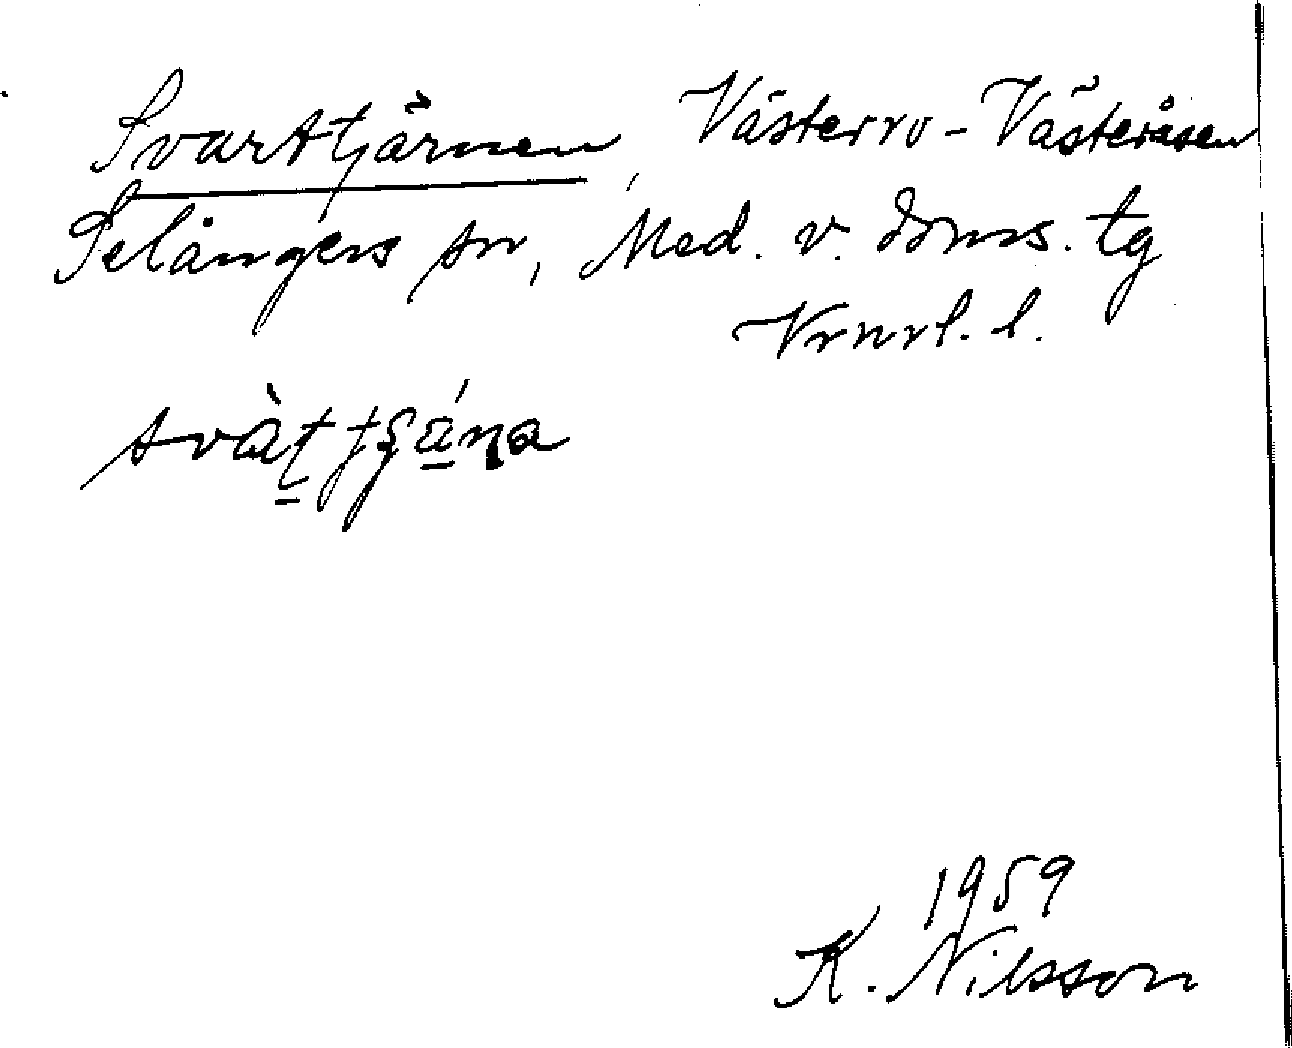 Svarttjärnen, Västerro - Västeråsen
Selångers sn, Med. v. doms. tg
Vrnrl. l.
svàt̠ tʂä́ṉa
1959
K. Nilsson